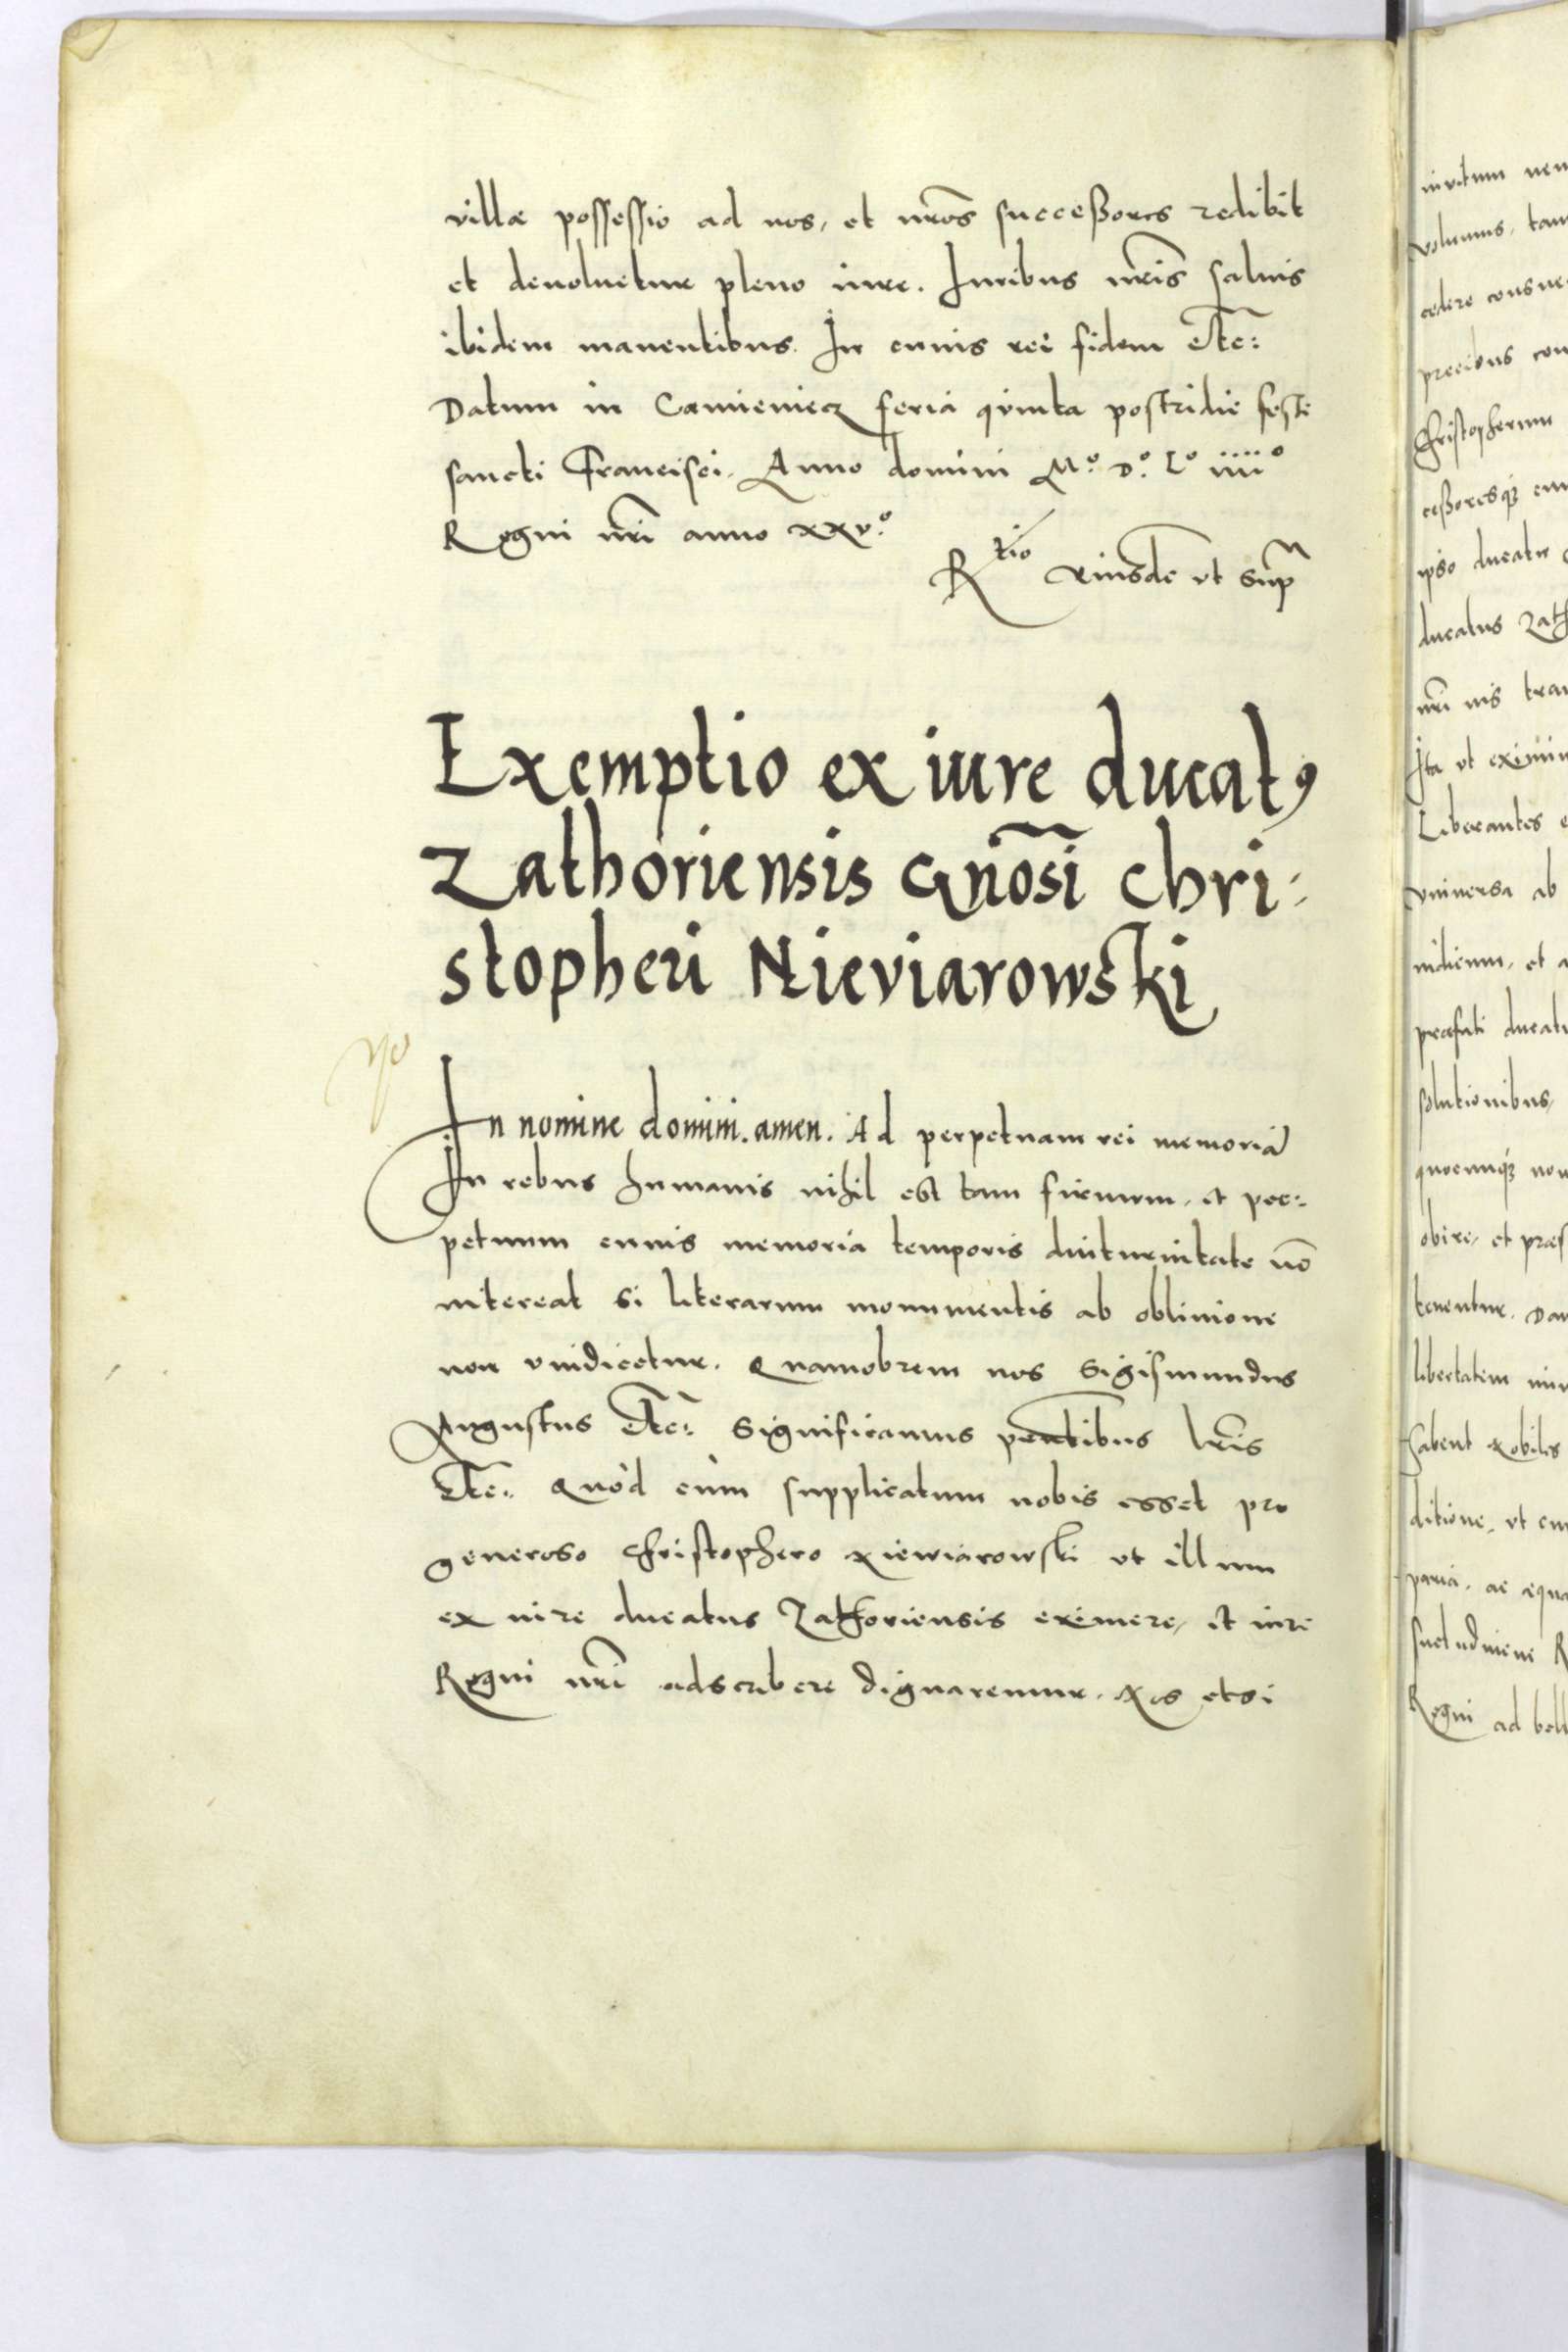 villæ possessio ad nos, et nrōs successores redibit
et devoluetur pleno iure. Iuribus nrīs saluis
ibidem manentibus. In cuius rei fidem etc:
Datum in Camieniecz feria quinta postridie feste
sancti Francisci. Anno domini M.º D.º Lº iiiiº
Regni nrī anno xxv.º
Rtio eiusdē vt sup
Exemptio ex iure ducatꝰ
Zathoriensis Gnōsi Chri-
stopheri Nieviarowski
In nomine domini. amen. Ad perpetuam rei memoriā
In rebus humanis nihil est tam firmum, et per:
petuum cuius memoria temporis diuturnitate nō
intereat si literarum monumentis ab obliuione
non vindicetur. Quamobrem nos Sigismundus
Augustus etc: Significamus pentibus lrīs
etc. Quòd cùm supplicatum nobis esset pro
generoso Christophero Niewiarowski vt illum
ex iure ducatus Zathoriensis eximere, et iure
Regni nrī adscribere dignaremur. Nos etsi
invitum
volumus, tam
cedere
precibus
Christopherum
cessoresqȝ
ipso ducatu
ducatus Zath
nrī
Ita vt
Liberantes
vniversa ab
iudicum, et
præfati ducatu
solutionibus,
quocunqȝ
obire, et præs
tenentur. Dan
libertatem
habent Nobiles
ditione, vt
paria, ac æqua
suetudinem R
Regni ad bell